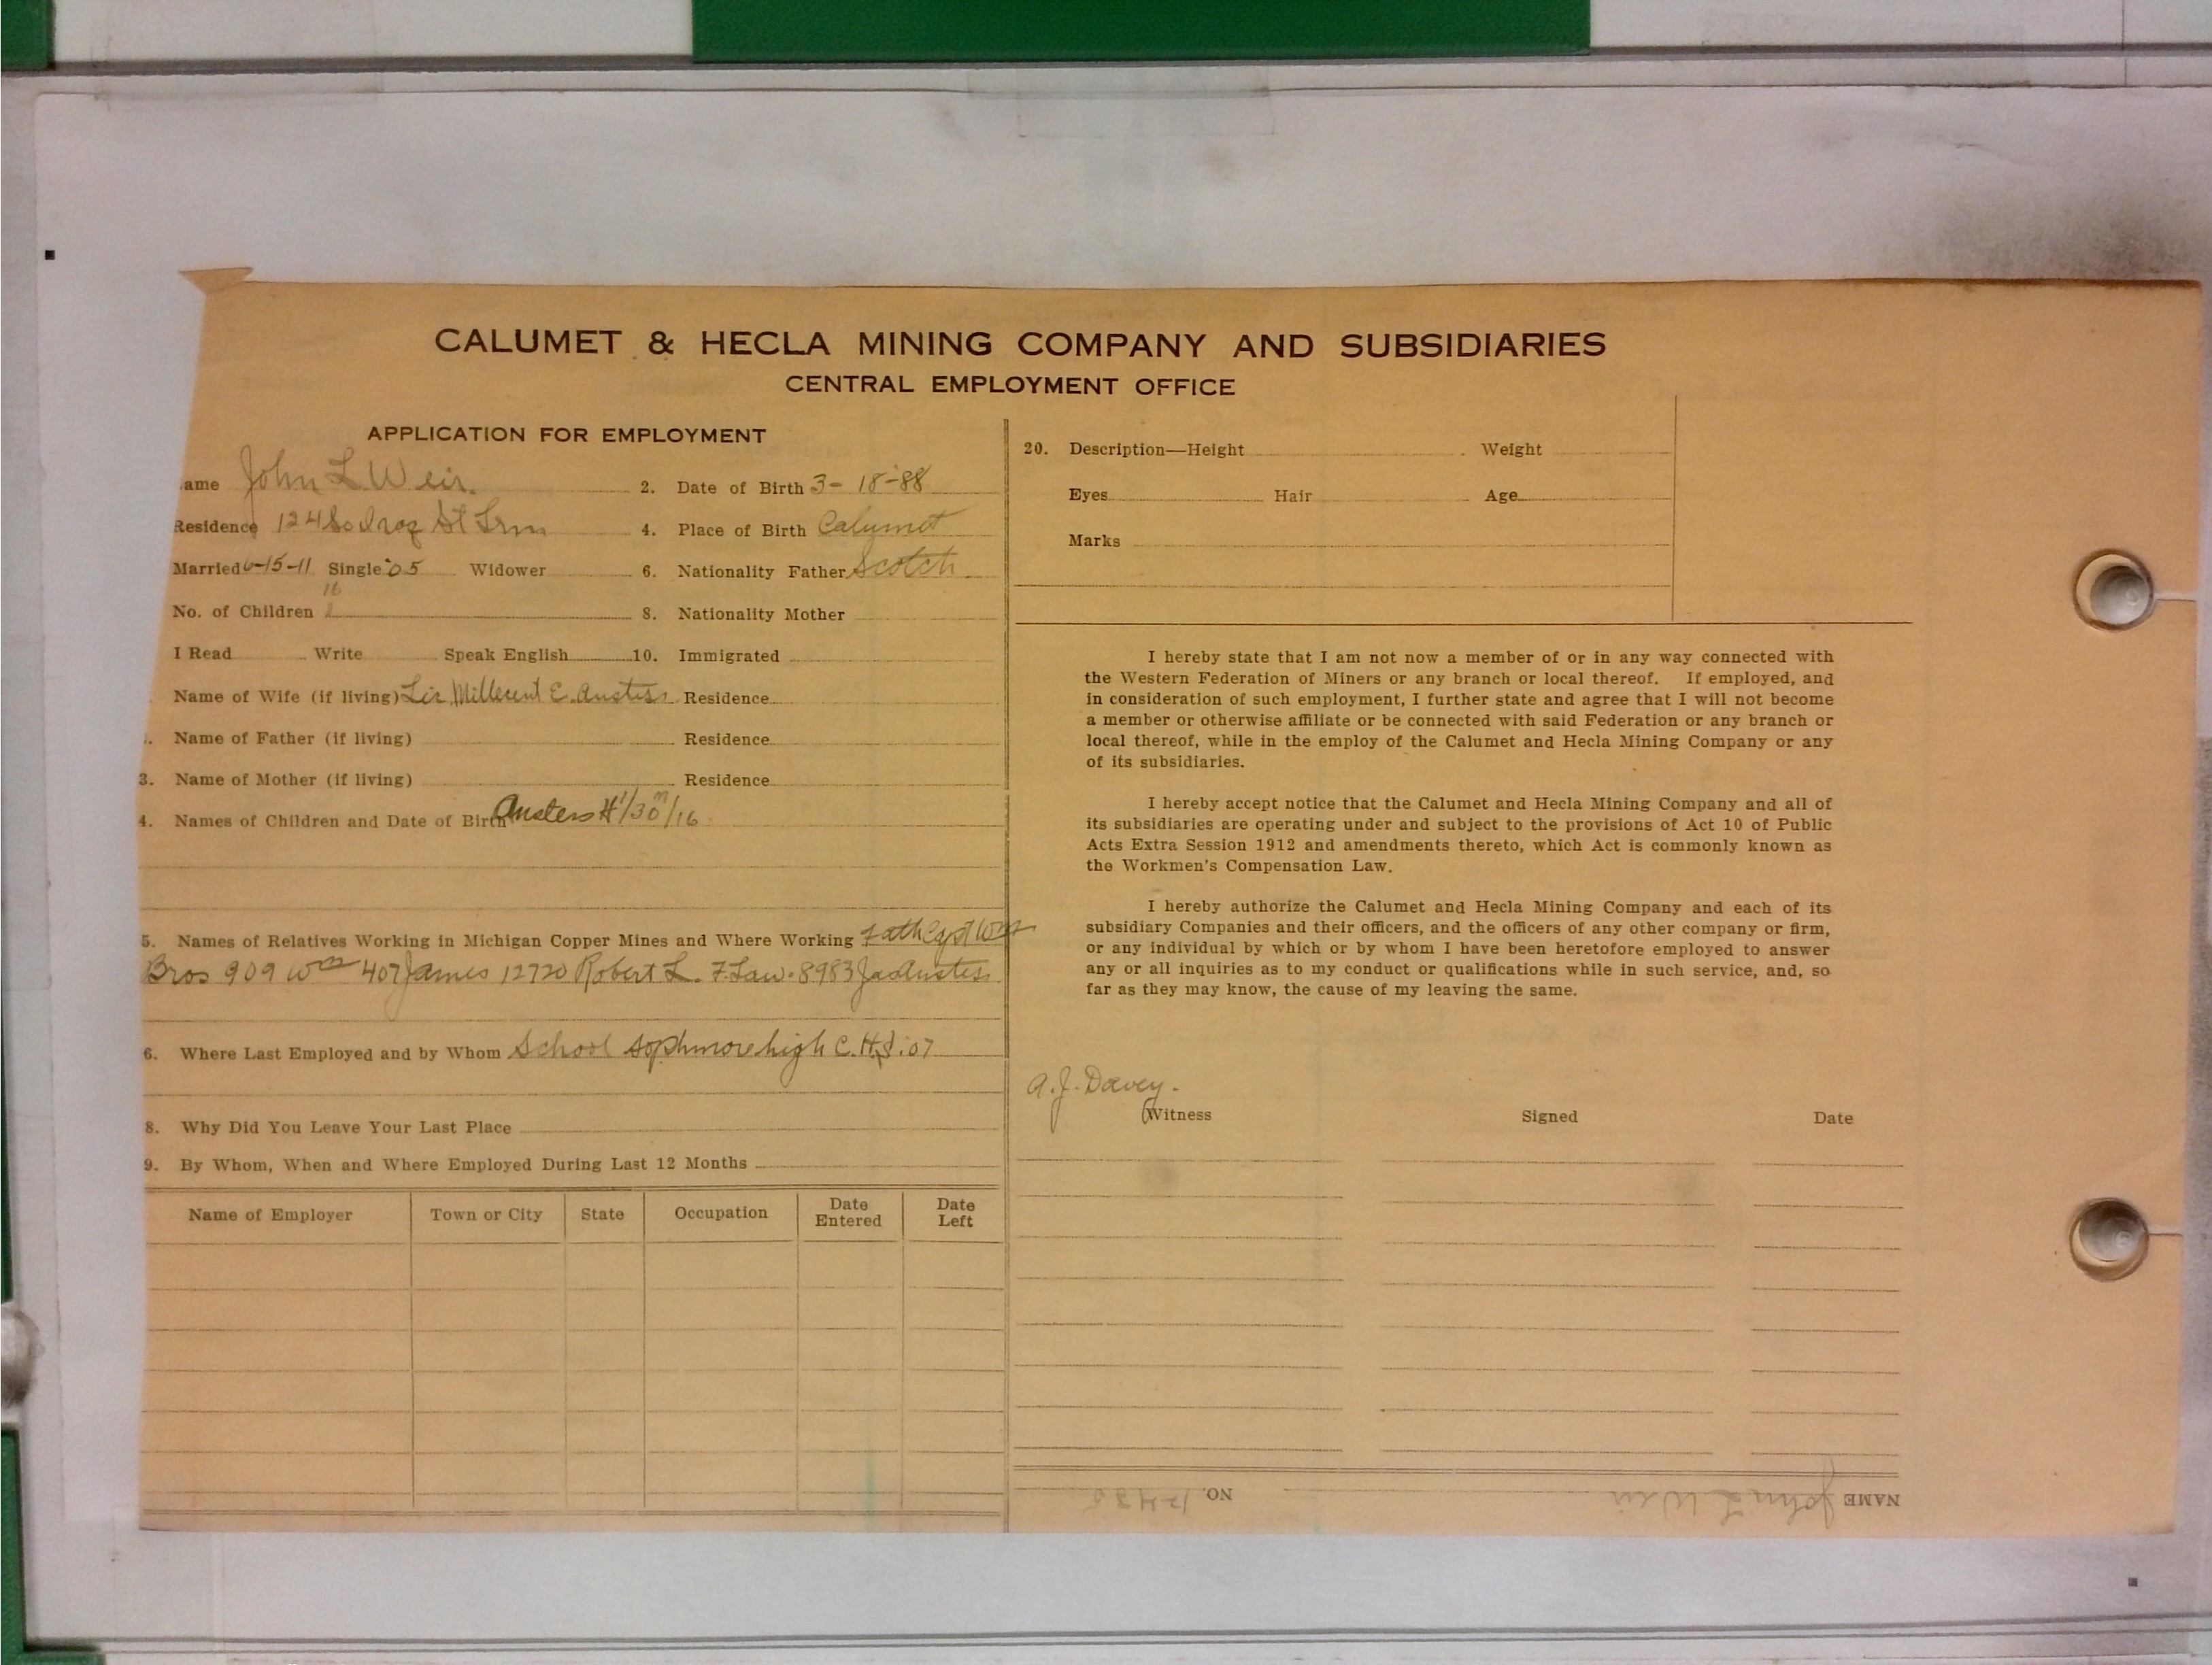 CALUMET & HECLA MINING COMPANY AND SUBSIDIARIES
CENTRAL EMPLOYMENT OFFICE
APPLICATION FOR EMPLOYMENT
ame John L Weir. 2. Date of Birth 3-18-'88
Residence 124 So Iroq St Lrm 4. Place of Birth Calumet
Married 6-15-11 Single '05 Widower 6. Nationality Father Scotch
16
No. of Children 8. Nationality Mother
I Read Write Speak English 10. Immigrated
Name of Wife (if living) Millecent E. Austiss Residence
Name of Father (if living) Residence
3. Name of Mother (if living) Residence
4. Names of Children and Date of Birth 1/30/16
5. Names of Relatives Working in Michigan Copper Mines and Where Working Fath Capt
Bros 909 Wm 407 James 12720 Robert L. F. Law. 8983 Jas Austiss
6. Where Last Employed and by Whom School sophmore high C.H.S. '07
8. Why Did You Leave Your Last Place
9. By Whom, When and Where Employed During Last 12 Months
Name of Employer Town or City State Occupation Date Entered Date Left
20. Description—Height Weight
Eyes Hair Age
Marks
I hereby state that I am not now a member of or in any way connected with
the Western Federation of Miners or any branch or local thereof. If employed, and
in consideration of such employment, I further state and agree that I will not become
a member or otherwise affiliate or be connected with said Federation or any branch or
local thereof, while in the employ of the Calumet and Hecla Mining Company or any
of its subsidiaries.
I hereby accept notice that the Calumet and Hecla Mining Company and all of
its subsidiaries are operating under and subject to the provisions of Act 10 of Public
Acts Extra Session 1912 and amendments thereto, which Act is commonly known as
the Workmen's Compensation Law.
I hereby authorize the Calumet and Hecla Mining Company and each of its
subsidiary Companies and their officers, and the officers of any other company or firm,
or any individual by which or by whom I have been heretofore employed to answer
any or all inquiries as to my conduct or qualifications while in such service, and, so
far as they may know, the cause of my leaving the same.
A. J. Davey.
Witness Signed Date
NAME John L Weir NO.